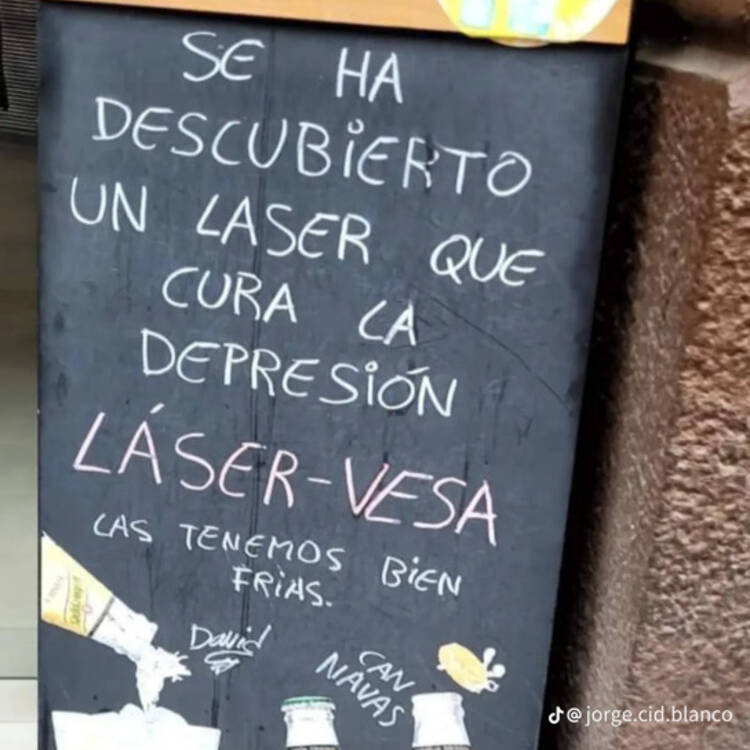 SE HA
DESCUBIERTO
UN LASER QUE
CURA LA
DEPRESIÓN
LÁSER-VESA
LAS TENEMOS BIEN
FRIAS.
David
CAN
NAVAS
@jorge.cid.blanco